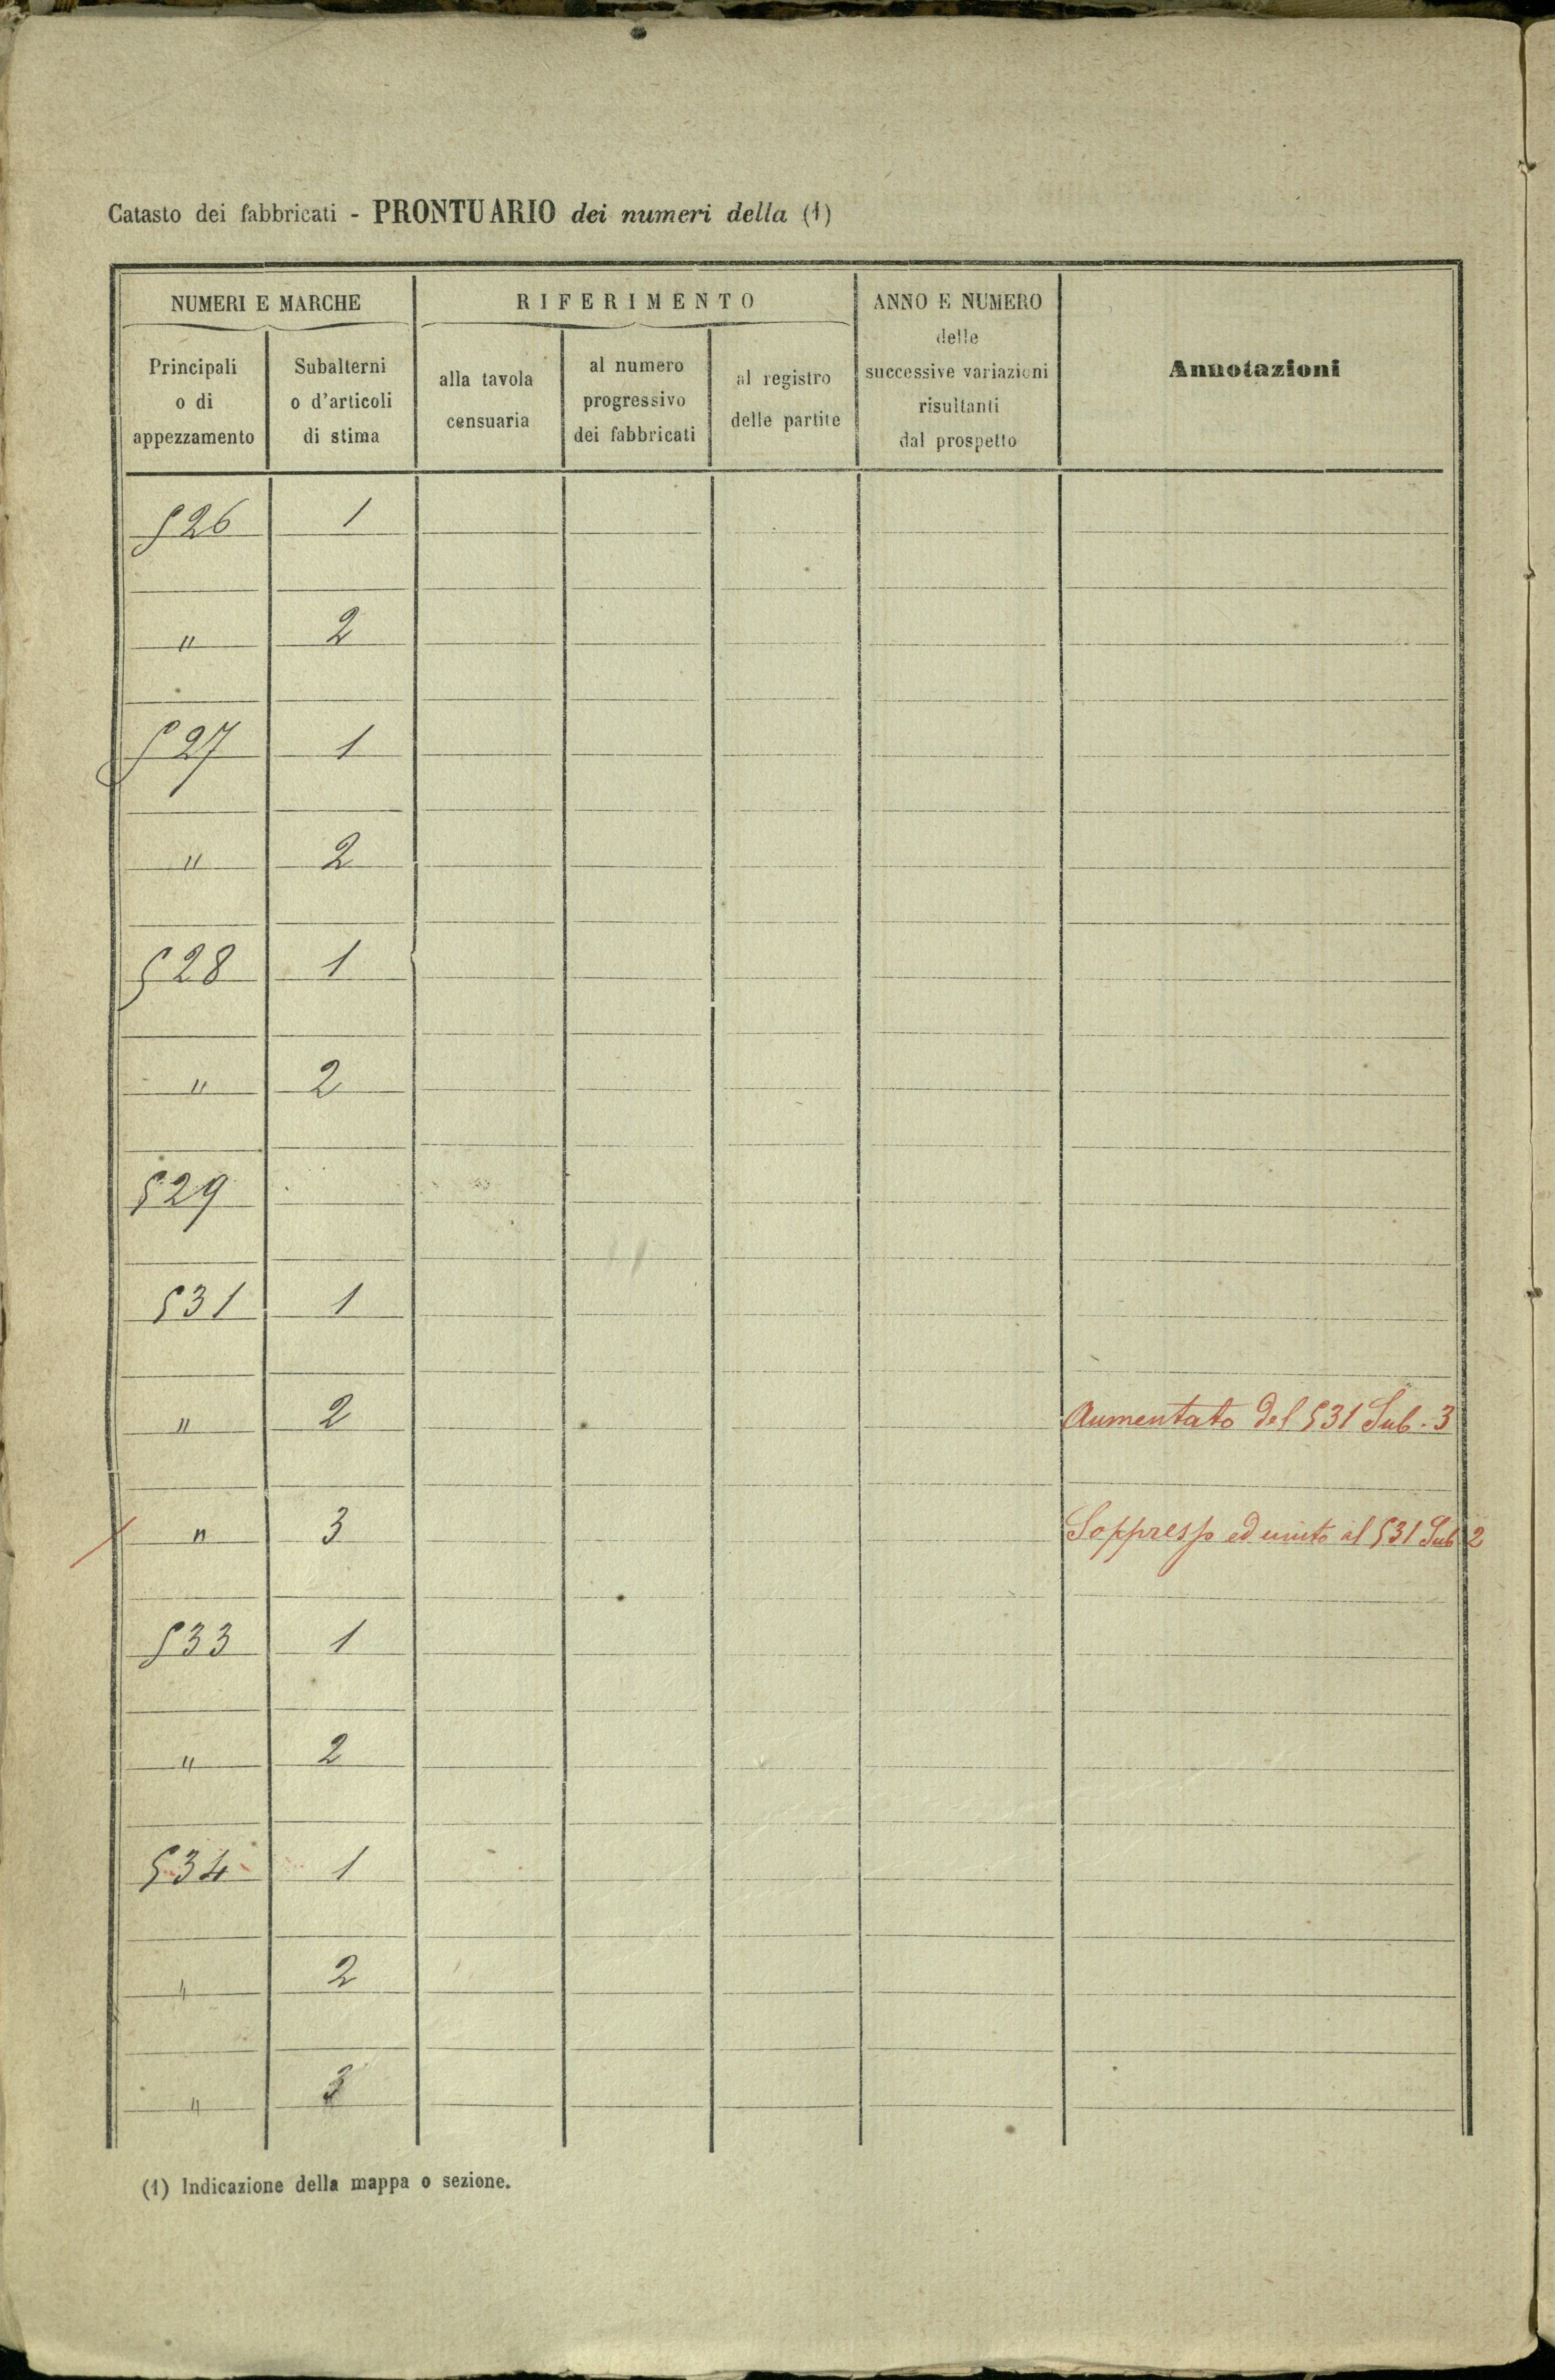 Catasto dei fabbricati - PRONTUARIO dei numeri della (1)
NUMERI E MARCHE
RIFERIMENTO
ANNO E NUMERO
delle
successive variazioni
risultanti
dal prospetto
Annotazioni
Principali
o di
appezzamento
Subalterni
o d'articoli
di stima
alla tavola
censuaria
al numero
progressivo
dei fabbricati
al registro
delle partite
526 1
" 2
527 1
" 2
528 1
" 2
529
531 1
" 2 Aumentato del 531 Sub. 3
" 3 Soppresso ed unito al 531 Sub 2
533 1
" 2
534 1
" 2
" 3
(1) Indicazione della mappa o sezione.